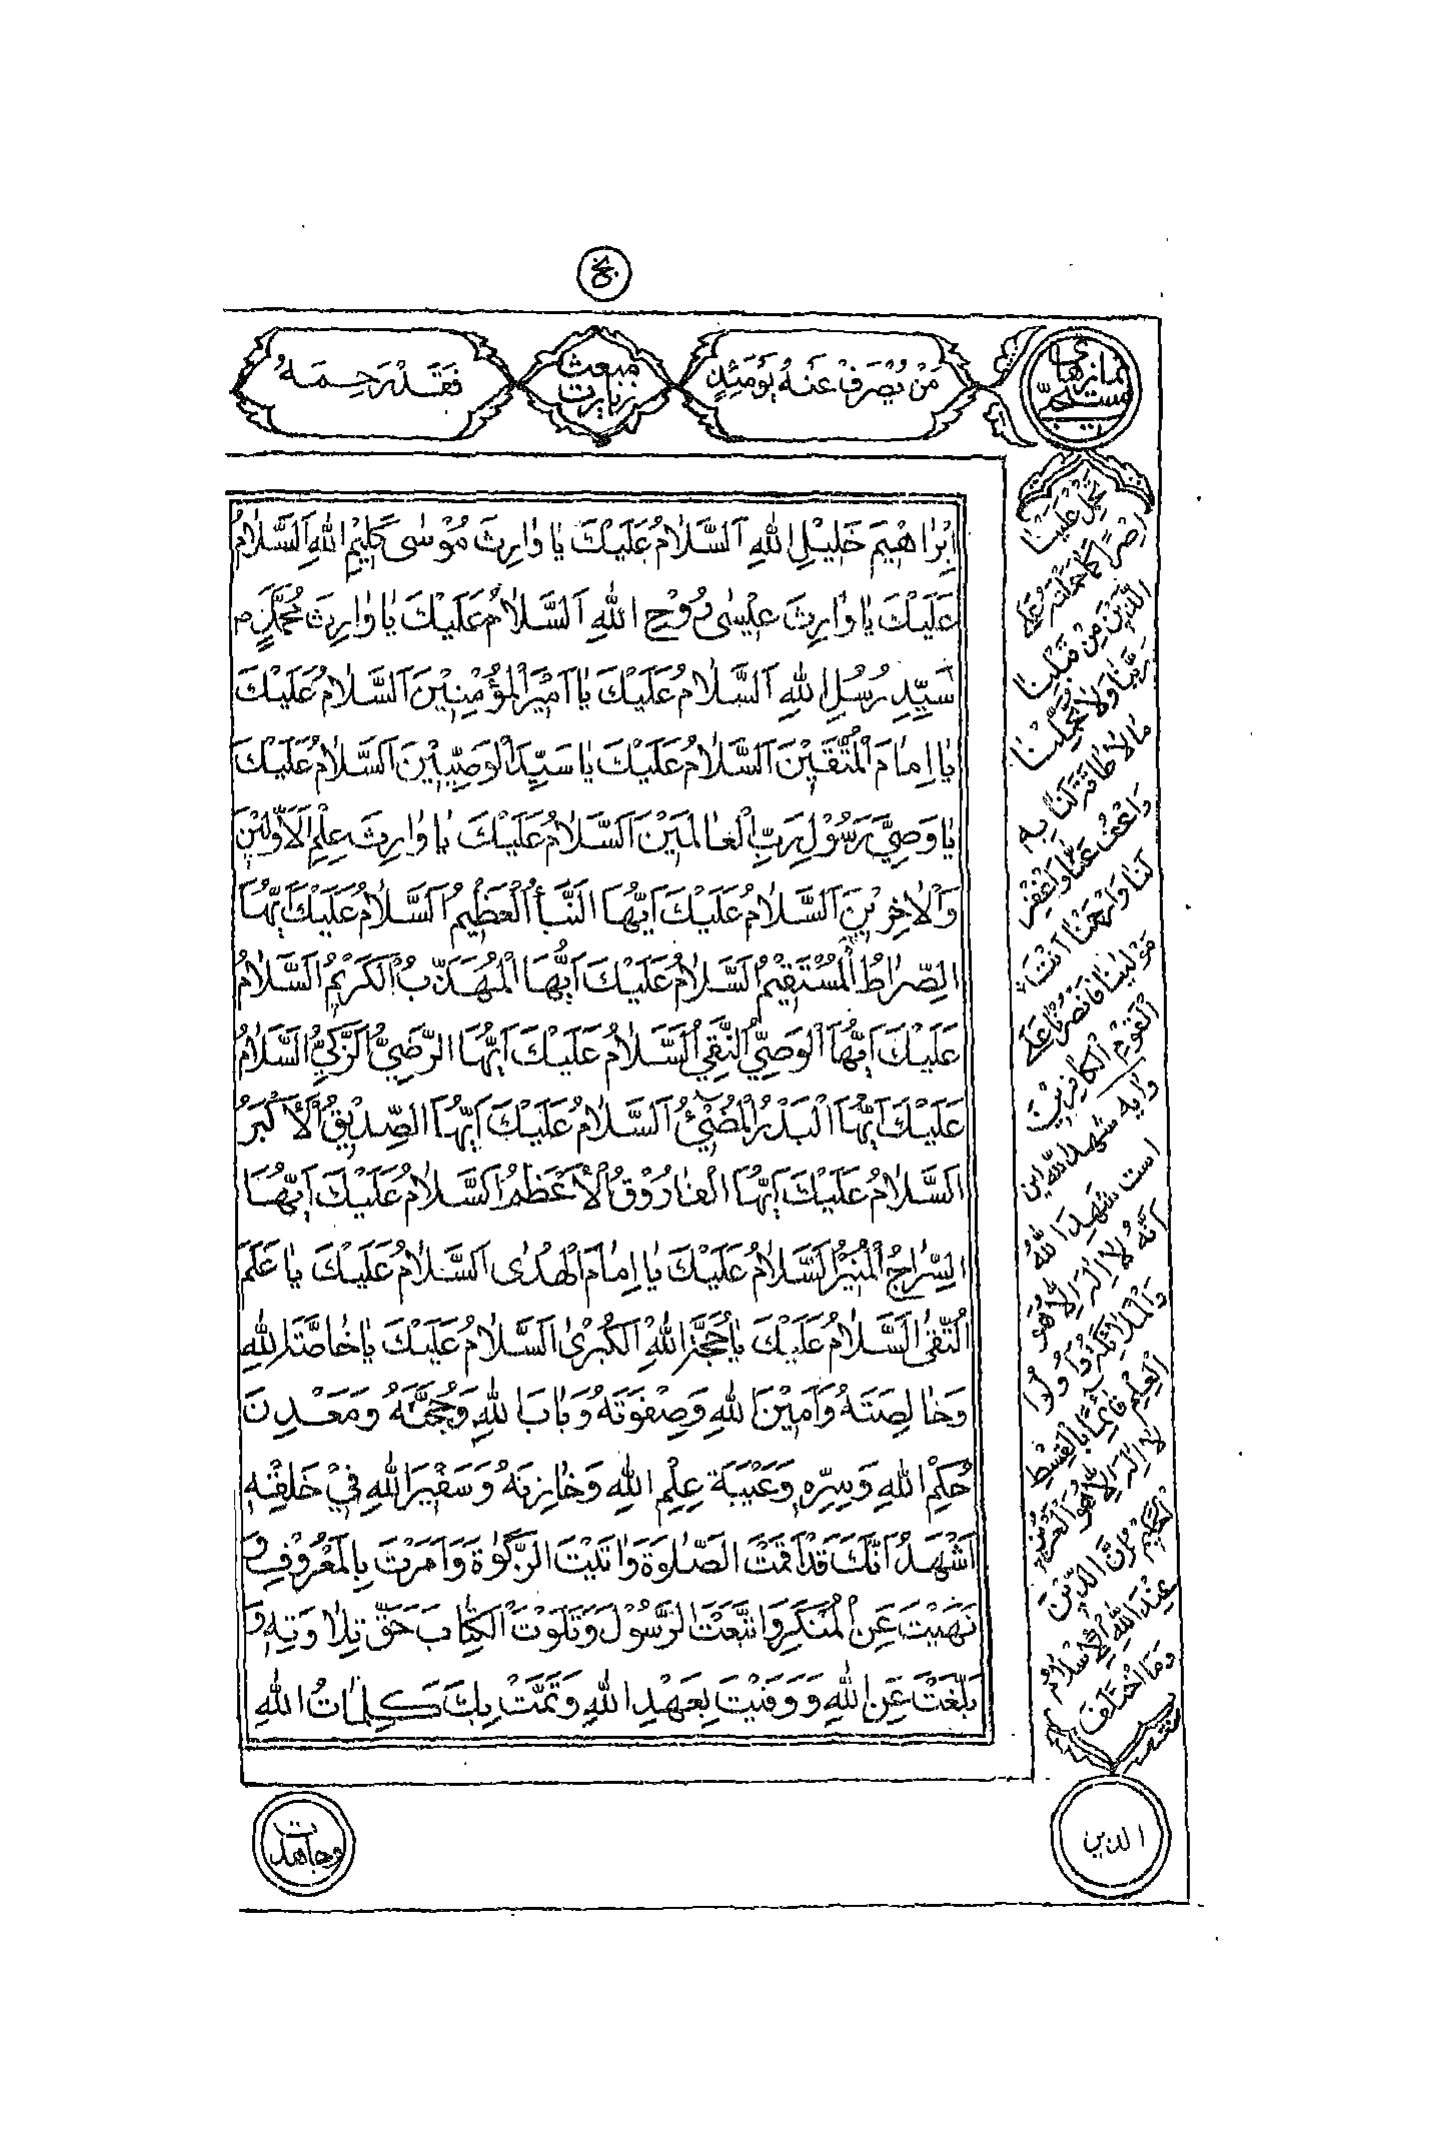 نمازهای مستحب
مَنْ يُصْرَفْ عَنْهُ يَوْمَئِذٍ
مبعث
زیارت
فَقَدْ رَحِمَهُ
اِبْرٰاهْيمَ خَليْلِ اللهِ اَلسَّلاٰمُ عَلَيْكَ يٰا وٰارِثَ مُوْسٰى كَلِيْمِ اللهِ اَلسَّلاٰمُ
عَلَيْكَ يٰا وٰارِثَ عيْسٰى رُوْحِ اللهِ اَلسَّلاٰمُ عَلَيْكَ يٰا وٰارِثَ مُحَمَّدٍ
سَيِّدِ رُسُلِ اللهِ اَلسَّلاٰمُ عَلَيْكَ يٰا اَميْرَ الْمُؤْمِنِيْنَ اَلسَّلاٰمُ عَلَيْكَ
يٰا اِمٰامَ الْمُتَّقيْنَ اَلسَّلاٰمُ عَلَيْكَ يٰا سَيِّدَ الْوَصِيّيْنَ اَلسَّلاٰمُ عَلَيْكَ
يٰا وَصِيَّ رَسُوْلِ رَبِّ الْعٰالَميْنَ اَلسَّلاٰمُ عَلَيْكَ يٰا وٰارِثَ عِلْمِ الْاَوَّليْنَ
وَالْاٰخِريْنَ اَلسَّلاٰمُ عَلَيْكَ اَيُّهَا النَّبَأُ الْعَظيْمُ اَلسَّلاٰمُ عَلَيْكَ اَيُّهَا
الصِّرٰاطُ الْمُسْتَقيْمُ اَلسَّلاٰمُ عَلَيْكَ اَيُّهَا الْمُهَذَّبُ الْكَريْمُ اَلسَّلاٰمُ
عَلَيْكَ اَيُّهَا الْوَصِيُّ التَّقِيُّ اَلسَّلاٰمُ عَلَيْكَ اَيُّهَا الرَّضِيُّ الزَّكِيُّ اَلسَّلاٰمُ
عَلَيْكَ اَيُّهَا الْبَدْرُ الْمُضيْئُ اَلسَّلاٰمُ عَلَيْكَ اَيُّهَا الصِّديْقُ الْاَكْبَرُ
اَلسَّلاٰمُ عَلَيْكَ اَيُّهَا الْفٰارُوْقُ الْاَعْظَمُ اَلسَّلاٰمُ عَلَيْكَ اَيُّهَا
السِّرٰاجُ الْمُنيْرُ اَلسَّلاٰمُ عَلَيْكَ يٰا اِمٰامَ الْهُدٰى اَلسَّلاٰمُ عَلَيْكَ يٰا عَلَمَ
التُّقٰى اَلسَّلاٰمُ عَلَيْكَ يٰا حُجَّةَ اللهِ الْكُبْرٰى اَلسَّلاٰمُ عَلَيْكَ يٰا خٰاصَّةَ اللهِ
وَخٰالِصَتَهُ وَاَميْنَ اللهِ وَصِفْوَتَهُ وَبٰابَ اللهِ وَحُجَّتَهُ وَمَعْدِنَ
حُكْمِ اللهِ وَسِرِّهِ وَعَيْبَةَ عِلْمِ اللهِ وَخٰازِنَهُ وَسَفيْرَ اللهِ فيْ خَلْقِهِ
اَشْهَدُ اَنَّكَ قَدْ اَقَمْتَ الصَّلٰوةَ وَاٰتَيْتَ الزَّكٰوةَ وَاَمَرْتَ بِالْمَعْرُوْفِ وَ
نَهَيْتَ عَنِ الْمُنْكَرِ وَاتَّبَعْتَ الرَّسُوْلَ وَتَلَوْتَ الْكِتٰابَ حَقَّ تِلاٰوَتِهِ وَ
بَلَّغْتَ عَنِ اللهِ وَوَفَيْتَ بِعَهْدِ اللهِ وَتَمَّتْ بِكَ كَلِمٰاتُ اللهِ
مِلْ عَلَيْنٰا
اِصْرًا كَمٰا حَمَلْتَهُ عَلَى
الَّذيْنَ مِنْ قَبْلِنٰا
رَبَّنٰا وَلاٰ تُحَمِّلْنٰا
مٰا لاٰ طٰاقَةَ لَنٰا بِهِ
وَاعْفُ عَنّٰا وَاغْفِرْ
لَنٰا وَارْحَمْنٰا اَنْتَ
مَوْلٰينٰا فَانْصُرْنٰا عَلَى
الْقَوْمِ الْكٰافِريْنَ
وآیه شهدالله این
است شَهِدَ اللهُ
اَنَّهُ لاٰ اِلٰهَ اِلاّٰ هُوَ
وَالْمَلاٰئِكَةُ وَاُولُوا
الْعِلْمِ قٰائِمًا بِالْقِسْطِ
لاٰ اِلٰهَ اِلاّٰ هُوَ الْعَزيْزُ
الْحَكيْمُ اِنَّ الدّيْنَ
عِنْدَ اللهِ الْاِسْلاٰمُ
وَمَا اخْتَلَفَ
الذین
وجاهدت